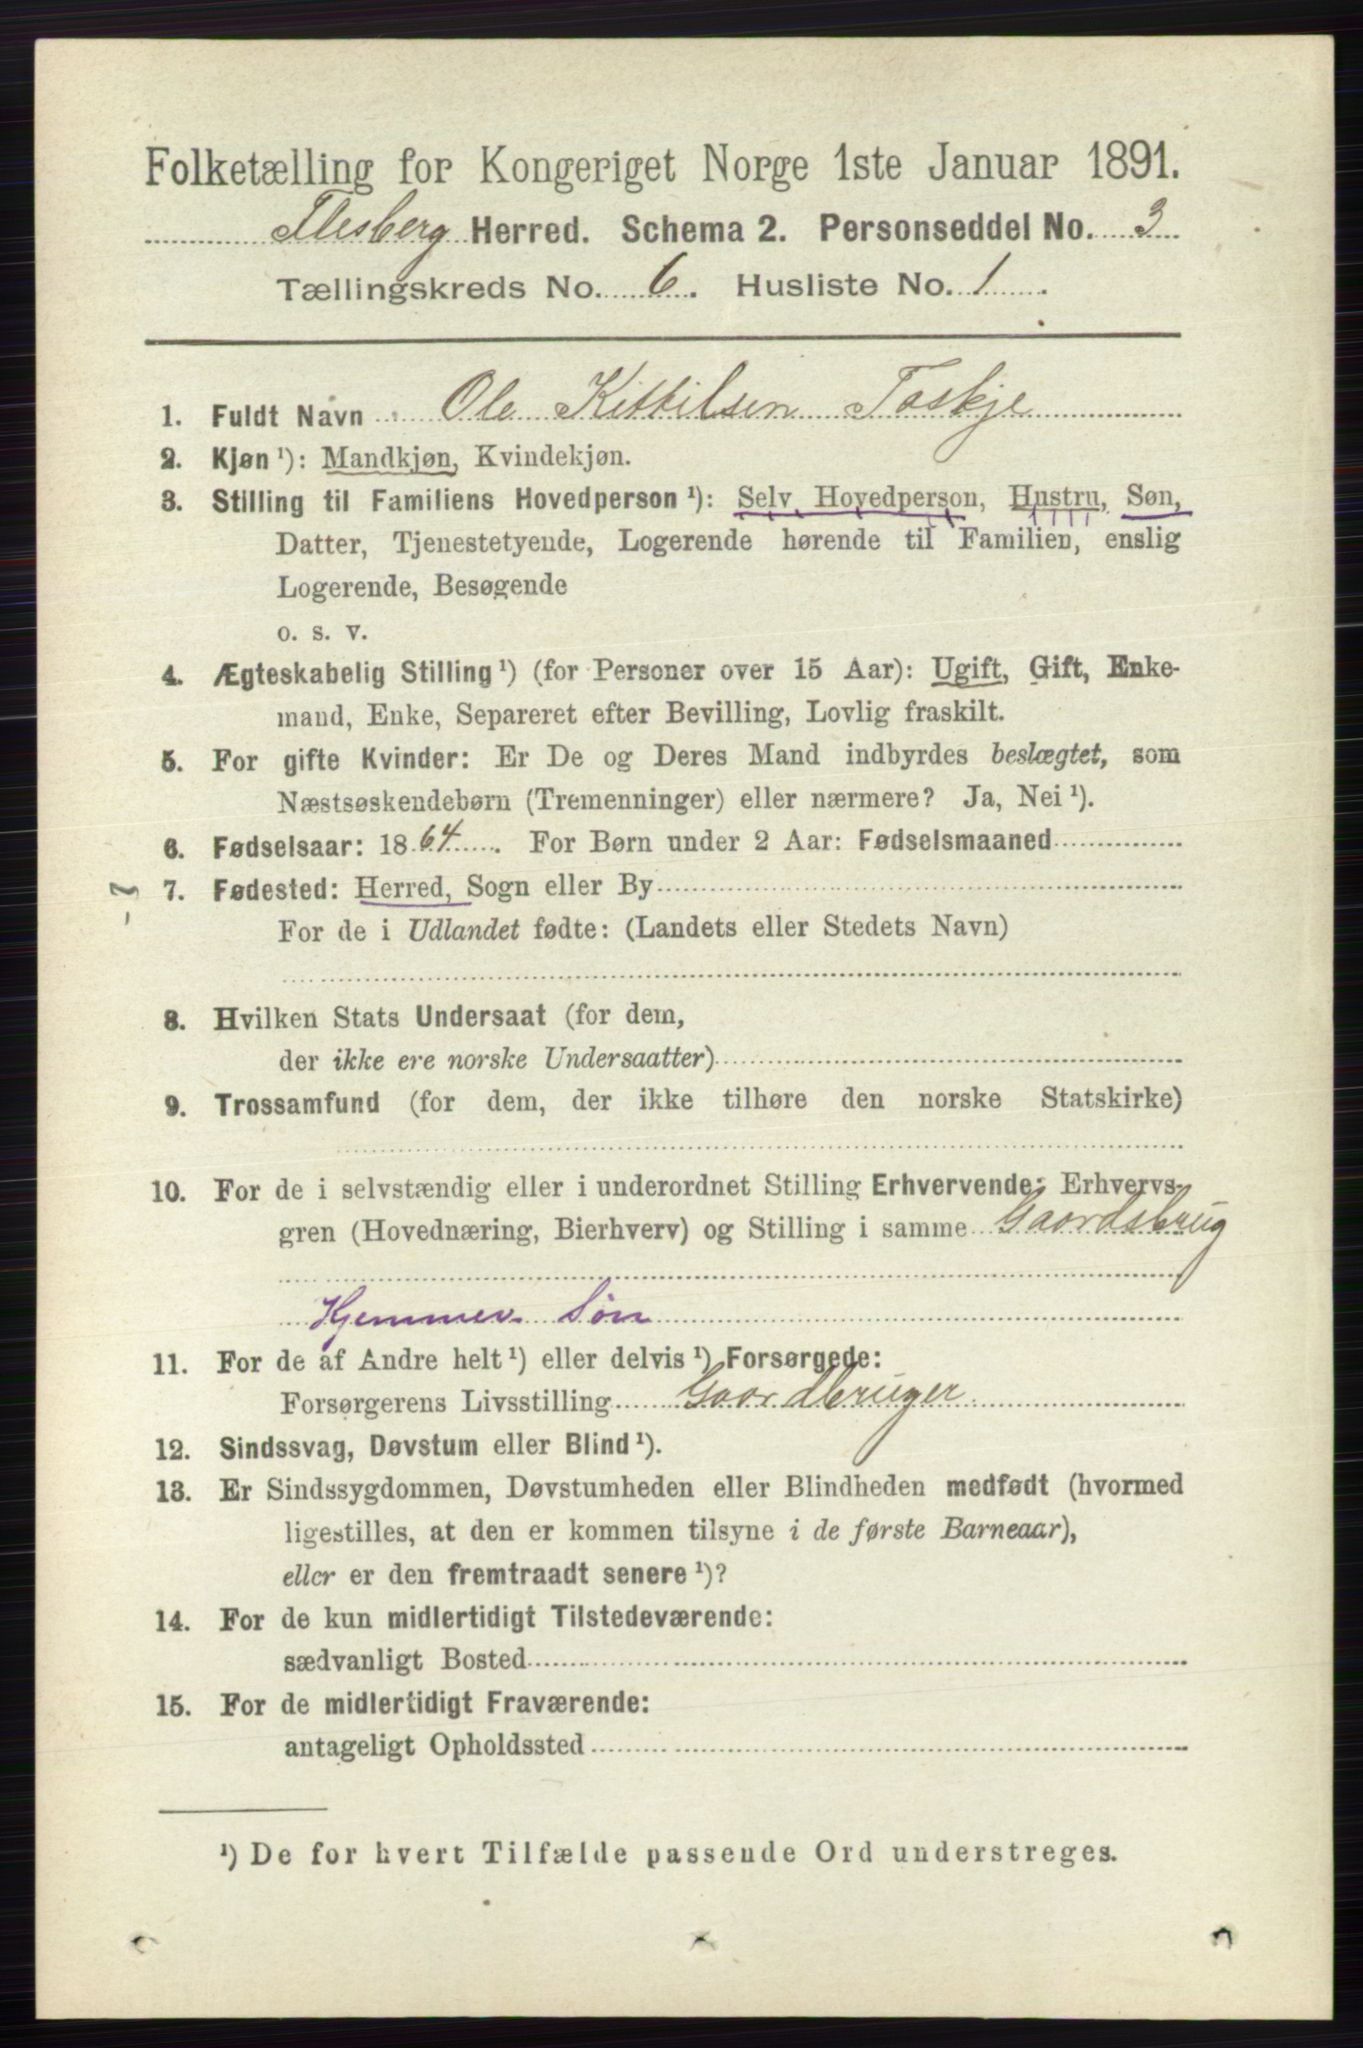 Folketælling for Kongeriget Norge 1ste Januar 1891.
Flesberg Herred. Schema 2. Personseddel No. 3
Tællingskreds No. 6. Husliste No. 1.
1. Fuldt Navn Ole Kittilsen Taskje
2. Kjøn ¹): Mandkjøn, Kvindekjøn.
3. Stilling til Familiens Hovedperson ¹): Selv Hovedperson, Hustru, Søn,
Datter, Tjenestetyende, Logerende hørende til Familien, enslig
Logerende, Besøgende
o. s. v.
4. Ægteskabelig Stilling ¹) (for Personer over 15 Aar): Ugift, Gift, Enke-
mand, Enke, Separeret efter Bevilling, Lovlig fraskilt.
5. For gifte Kvinder: Er De og Deres Mand indbyrdes beslægtet, som
Næstsøskendebørn (Tremenninger) eller nærmere? Ja, Nei ¹).
6. Fødselsaar: 1864. For Børn under 2 Aar: Fødselsmaaned
7. Fødested: Herred, Sogn eller By
For de i Udlandet fødte: (Landets eller Stedets Navn)
8. Hvilken Stats Undersaat (for dem,
der ikke ere norske Undersaatter)
9. Trossamfund (for dem, der ikke tilhøre den norske Statskirke)
10. For de i selvstændig eller i underordnet Stilling Erhvervende: Erhvervs-
gren (Hovednæring, Bierhverv) og Stilling i samme Gaardsbrug
Hjemmev. Søn
11. For de af Andre helt ¹) eller delvis ¹) Forsørgede:
Forsørgerens Livsstilling Gaardbruger
12. Sindssvag, Døvstum eller Blind ¹).
13. Er Sindssygdommen, Døvstumheden eller Blindheden medfødt (hvormed
ligestilles, at den er kommen tilsyne i de første Barneaar),
eller er den fremtraadt senere ¹)?
14. For de kun midlertidigt Tilstedeværende:
sædvanligt Bosted
15. For de midlertidigt Fraværende:
antageligt Opholdssted
¹) De for hvert Tilfælde passende Ord understreges.